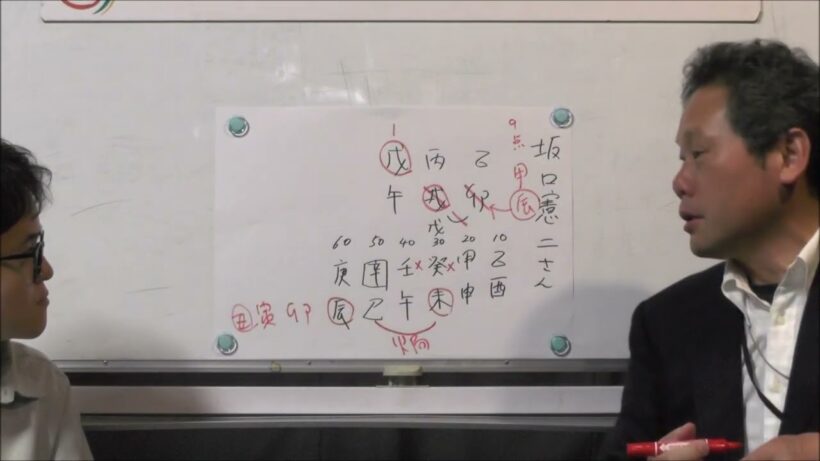 坂口憲二さん
9点
甲
辰
1
戊 丙 乙
午 戌 卯
戊
60 50 40 30 20 10
庚 辛 壬 癸 甲 乙
辰 巳 午 未 申 酉
丑 寅 卯